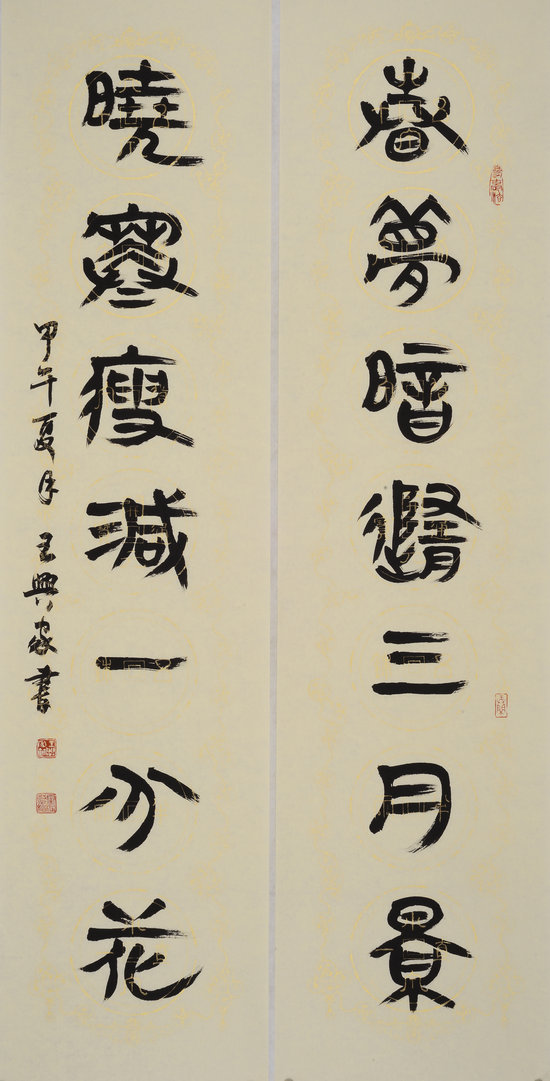 春夢暗隨三月景
曉寒瘦減一分花
甲午夏月 王興家書